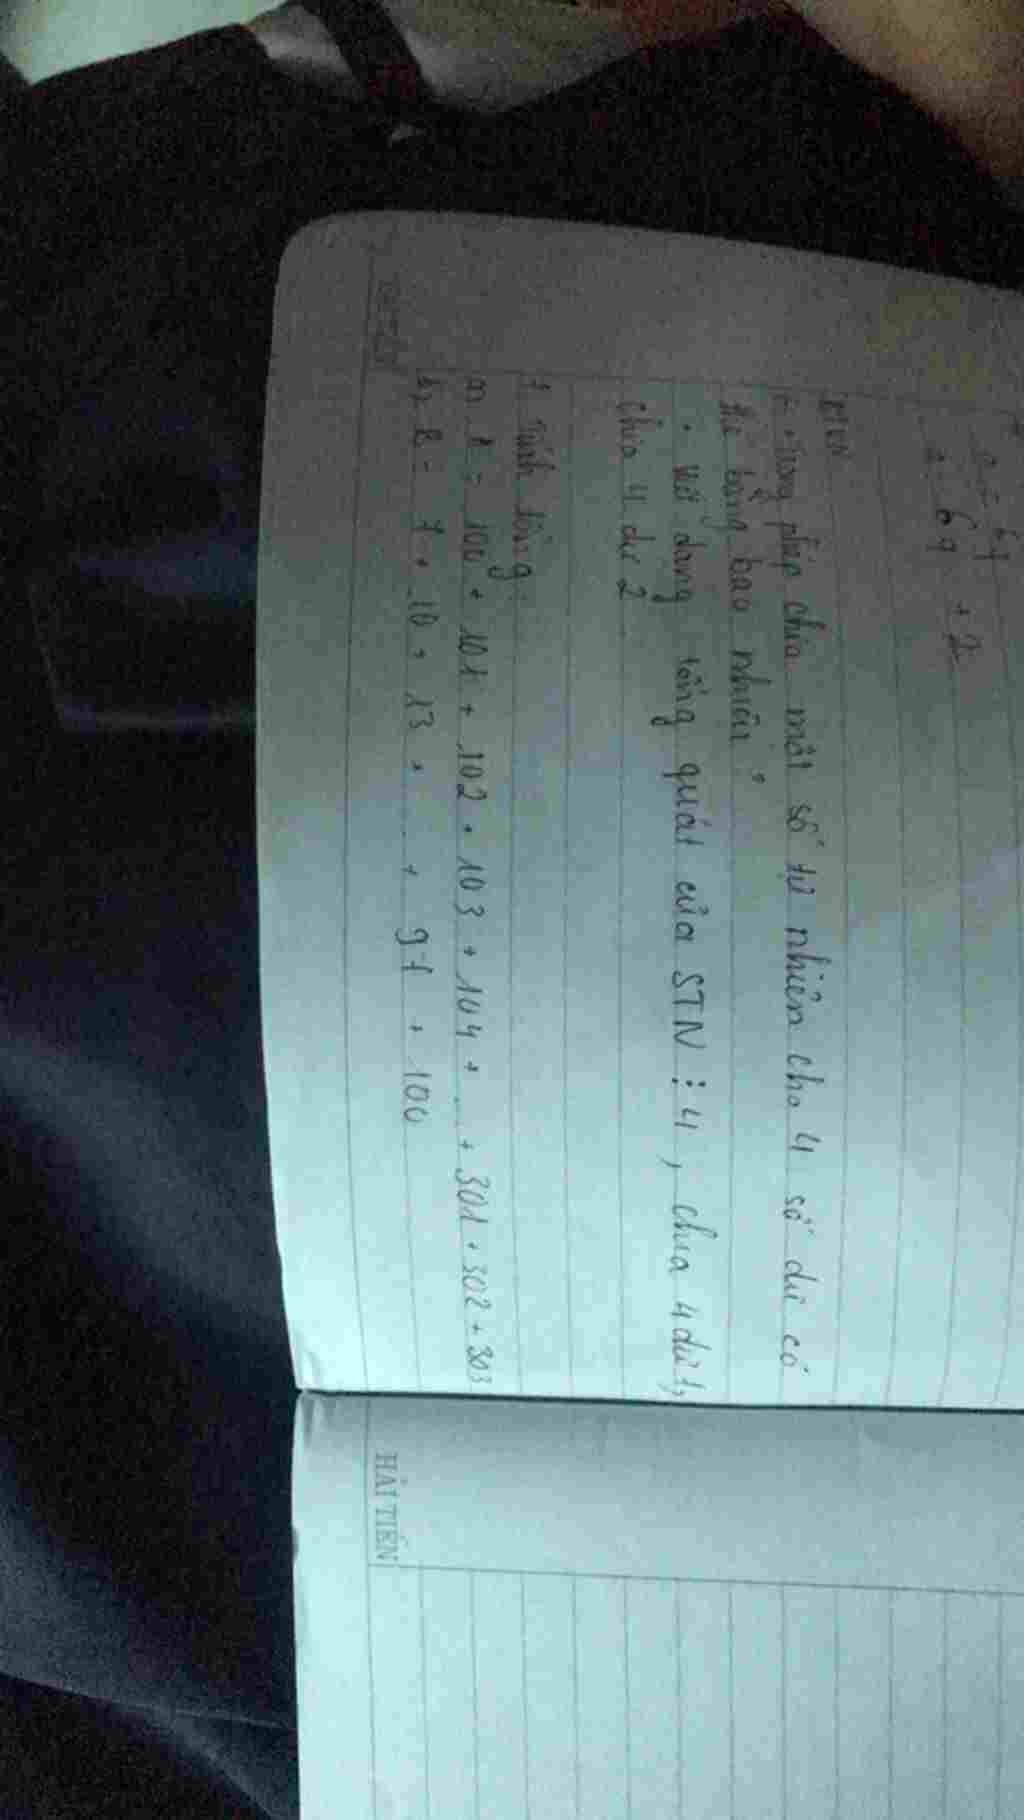 a = 6q
a = 6q + 2
BTVN
Trong phép chia một số tự nhiên cho 4 số dư có
thể bằng bao nhiêu?
. Viết dạng tổng quát của STN ⋮ 4, chia 4 dư 1,
chia 4 dư 2
1 Tính tổng:
a) A = 100 + 101 + 102 + 103 + 104 + ... + 301 + 302 + 303
b) B = 7 + 10 + 13 + ... + 97 + 100
HẢI TIẾN